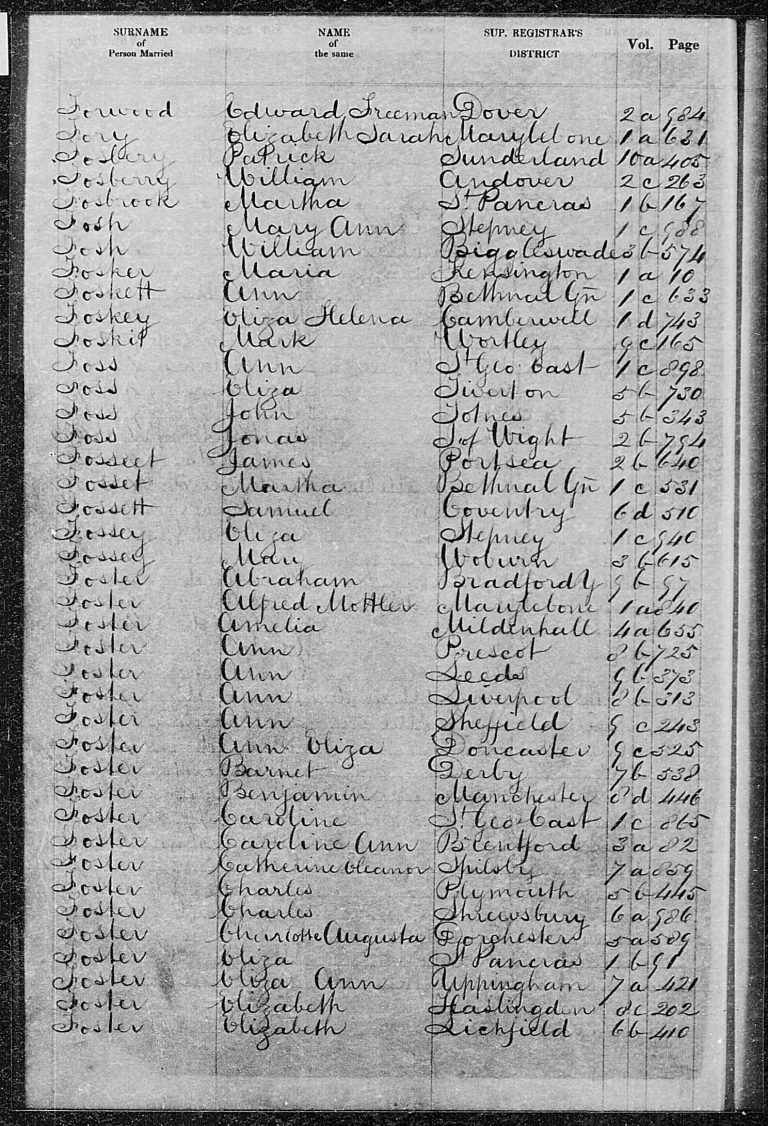 SURNAME of Person Married NAME of the same SUP. REGISTRAR'S DISTRICT Vol. Page
Forwood Edward Freeman Dover 2a 984
Fory Elizabeth Sarah Marylebone 1a 631
Fosbery Patrick Sunderland 10a 405
Fosberry William Andover 2c 263
Fosbrook Martha St Pancras 1b 167
Fosh Mary Ann Stepney 1c 988
Fosh William Biggleswade 3b 574
Fosker Maria Kensington 1a 10
Foskett Ann Bethnal Gn 1c 633
Foskey Eliza Helena Camberwell 1d 743
Foskit Mark Wortley 9c 165
Foss Ann St Geo. East 1c 898
Foss Eliza Tiverton 5b 730
Foss John Totnes 5b 343
Foss Jonas I of Wight 2b 794
Fosseet James Portsea 2b 640
Fosset Martha Bethnal Gn 1c 531
Fossett Samuel Coventry 6d 510
Fossey Eliza Stepney 1c 940
Fossey Woburn 3b 615
Foster Abraham Bradford Y 9b 97
Foster Alfred Mottler Marylebone 1a 840
Foster Amelia Mildenhall 4a 655
Foster Ann Prescot 8b 725
Foster Ann Leeds 9b 373
Foster Ann Liverpool 8b 313
Foster Ann Sheffield 9c 243
Foster Ann Eliza Doncaster 9c 525
Foster Barnet Derby 7b 538
Foster Benjamin Manchester 8d 446
Foster Caroline St Geo East 1c 865
Foster Caroline Ann Brentford 3a 82
Foster Catherine Eleanor Spilsby 7a 859
Foster Charles Plymouth 5b 445
Foster Charles Shrewsbury 6a 986
Foster Charlotte Augusta Dorchester 5a 589
Foster Eliza St Pancras 1b 91
Foster Eliza Ann Uppingham 7a 421
Foster Elizabeth Haslingden 8e 202
Foster Elizabeth Lichfield 6b 410